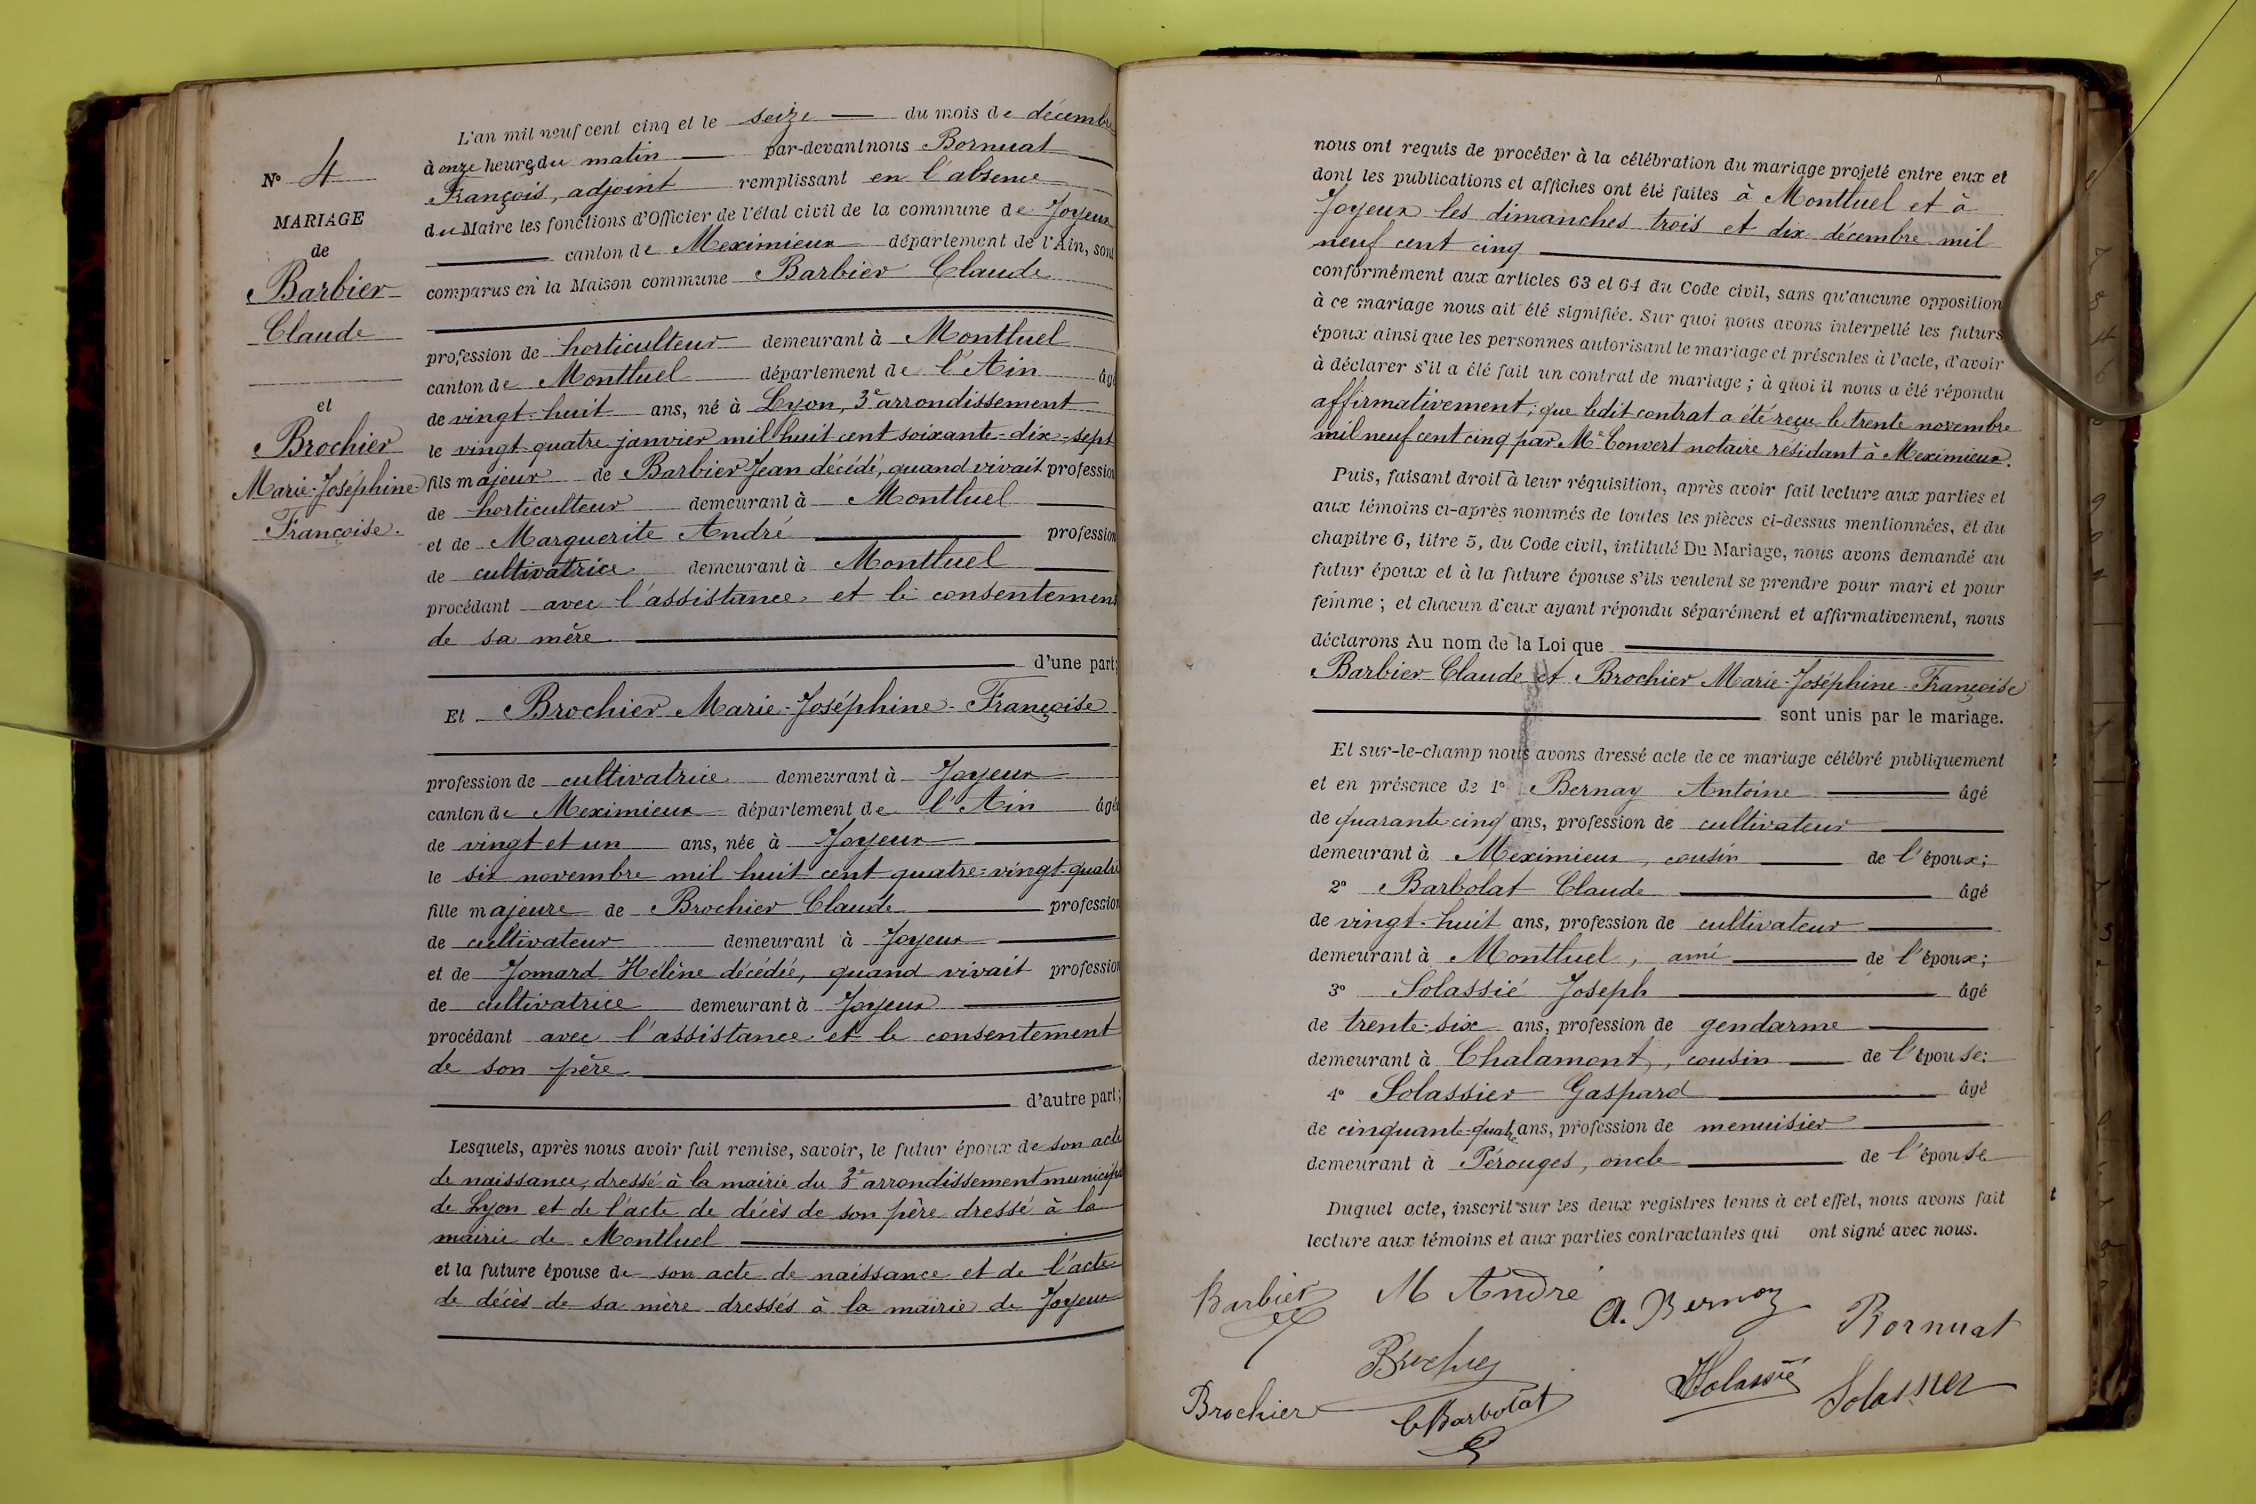 N° 4
MARIAGE
de
Barbier
Claude
et
Brochier
Marie-Joséphine-
Françoise.
L'an mil neuf cent cinq et le seize du mois de décembre
à onze heures du matin par-devant nous Bornuat
François, adjoint remplissant en l'absence
du Maire les fonctions d'Officier de l'état civil de la commune de Joyeux
canton de Meximieux département de l'Ain, sont
comparus en la Maison commune Barbier Claude
profession de horticulteur demeurant à Montluel
canton de Montluel département de l'Ain âgé
de vingt-huit ans, né à Lyon, 3e arrondissement
le vingt-quatre janvier mil huit cent soixante-dix-sept
fils majeur de Barbier Jean décédé, quand vivait profession
de horticulteur demeurant à Montluel
et de Marguerite André profession
de cultivatrice demeurant à Montluel
procédant avec l'assistance et le consentement
de sa mère
d'une part;
Et Brochier Marie-Joséphine-Françoise
profession de cultivatrice demeurant à Joyeux
canton de Meximieux département de l'Ain âgée
de vingt et un ans, née à Joyeux
le six novembre mil huit cent quatre-vingt-quatre
fille majeure de Brochier Claude profession
de cultivateur demeurant à Joyeux
et de Jomard Hélène décédée, quand vivait profession
de cultivatrice demeurant à Joyeux
procédant avec l'assistance et le consentement
de son père
d'autre part;
Lesquels, après nous avoir fait remise, savoir, le futur époux de son acte
de naissance, dressé à la mairie du 3e arrondissement municipal
de Lyon et de l'acte de décès de son père dressé à la
mairie de Montluel
et la future épouse de son acte de naissance et de l'acte
de décès de sa mère dressés à la mairie de Joyeux
nous ont requis de procéder à la célébration du mariage projeté entre eux et
dont les publications et affiches ont été faites à Montluel et à
Joyeux les dimanches trois et dix décembre mil
neuf cent cinq
conformément aux articles 63 et 64 du Code civil, sans qu'aucune opposition
à ce mariage nous ait été signifiée. Sur quoi nous avons interpellé les futurs
époux ainsi que les personnes autorisant le mariage et présentes à l'acte, d'avoir
à déclarer s'il a été fait un contrat de mariage; à quoi il nous a été répondu
affirmativement; que ledit contrat a été reçu le trente novembre
mil neuf cent cinq par Me Convert notaire résidant à Meximieux.
Puis, faisant droit à leur réquisition, après avoir fait lecture aux parties et
aux témoins ci-après nommés de toutes les pièces ci-dessus mentionnées, et du
chapitre 6, titre 5, du Code civil, intitulé Du Mariage, nous avons demandé au
futur époux et à la future épouse s'ils veulent se prendre pour mari et pour
femme; et chacun d'eux ayant répondu séparément et affirmativement, nous
déclarons Au nom de la Loi que
Barbier Claude et Brochier Marie-Joséphine-Françoise
sont unis par le mariage.
Et sur-le-champ nous avons dressé acte de ce mariage célébré publiquement
et en présence de 1° Bernay Antoine âgé
de quarante cinq ans, profession de cultivateur
demeurant à Meximieux, cousin de l'époux;
2° Barbolat Claude âgé
de vingt-huit ans, profession de cultivateur
demeurant à Montluel, ami de l'époux;
3° Solassié Joseph âgé
de trente-six ans, profession de gendarme
demeurant à Chalamont, cousin de l'épouse;
4° Solassier Gaspard âgé
de cinquante-quatre ans, profession de menuisier
demeurant à Pérouges, oncle de l'épouse
Duquel acte, inscrit sur les deux registres tenus à cet effet, nous avons fait
lecture aux témoins et aux parties contractantes qui ont signé avec nous.
Barbier M André A. Bernay Bornuat
Brochier Solassié Solassier
Brochier C Barbolat